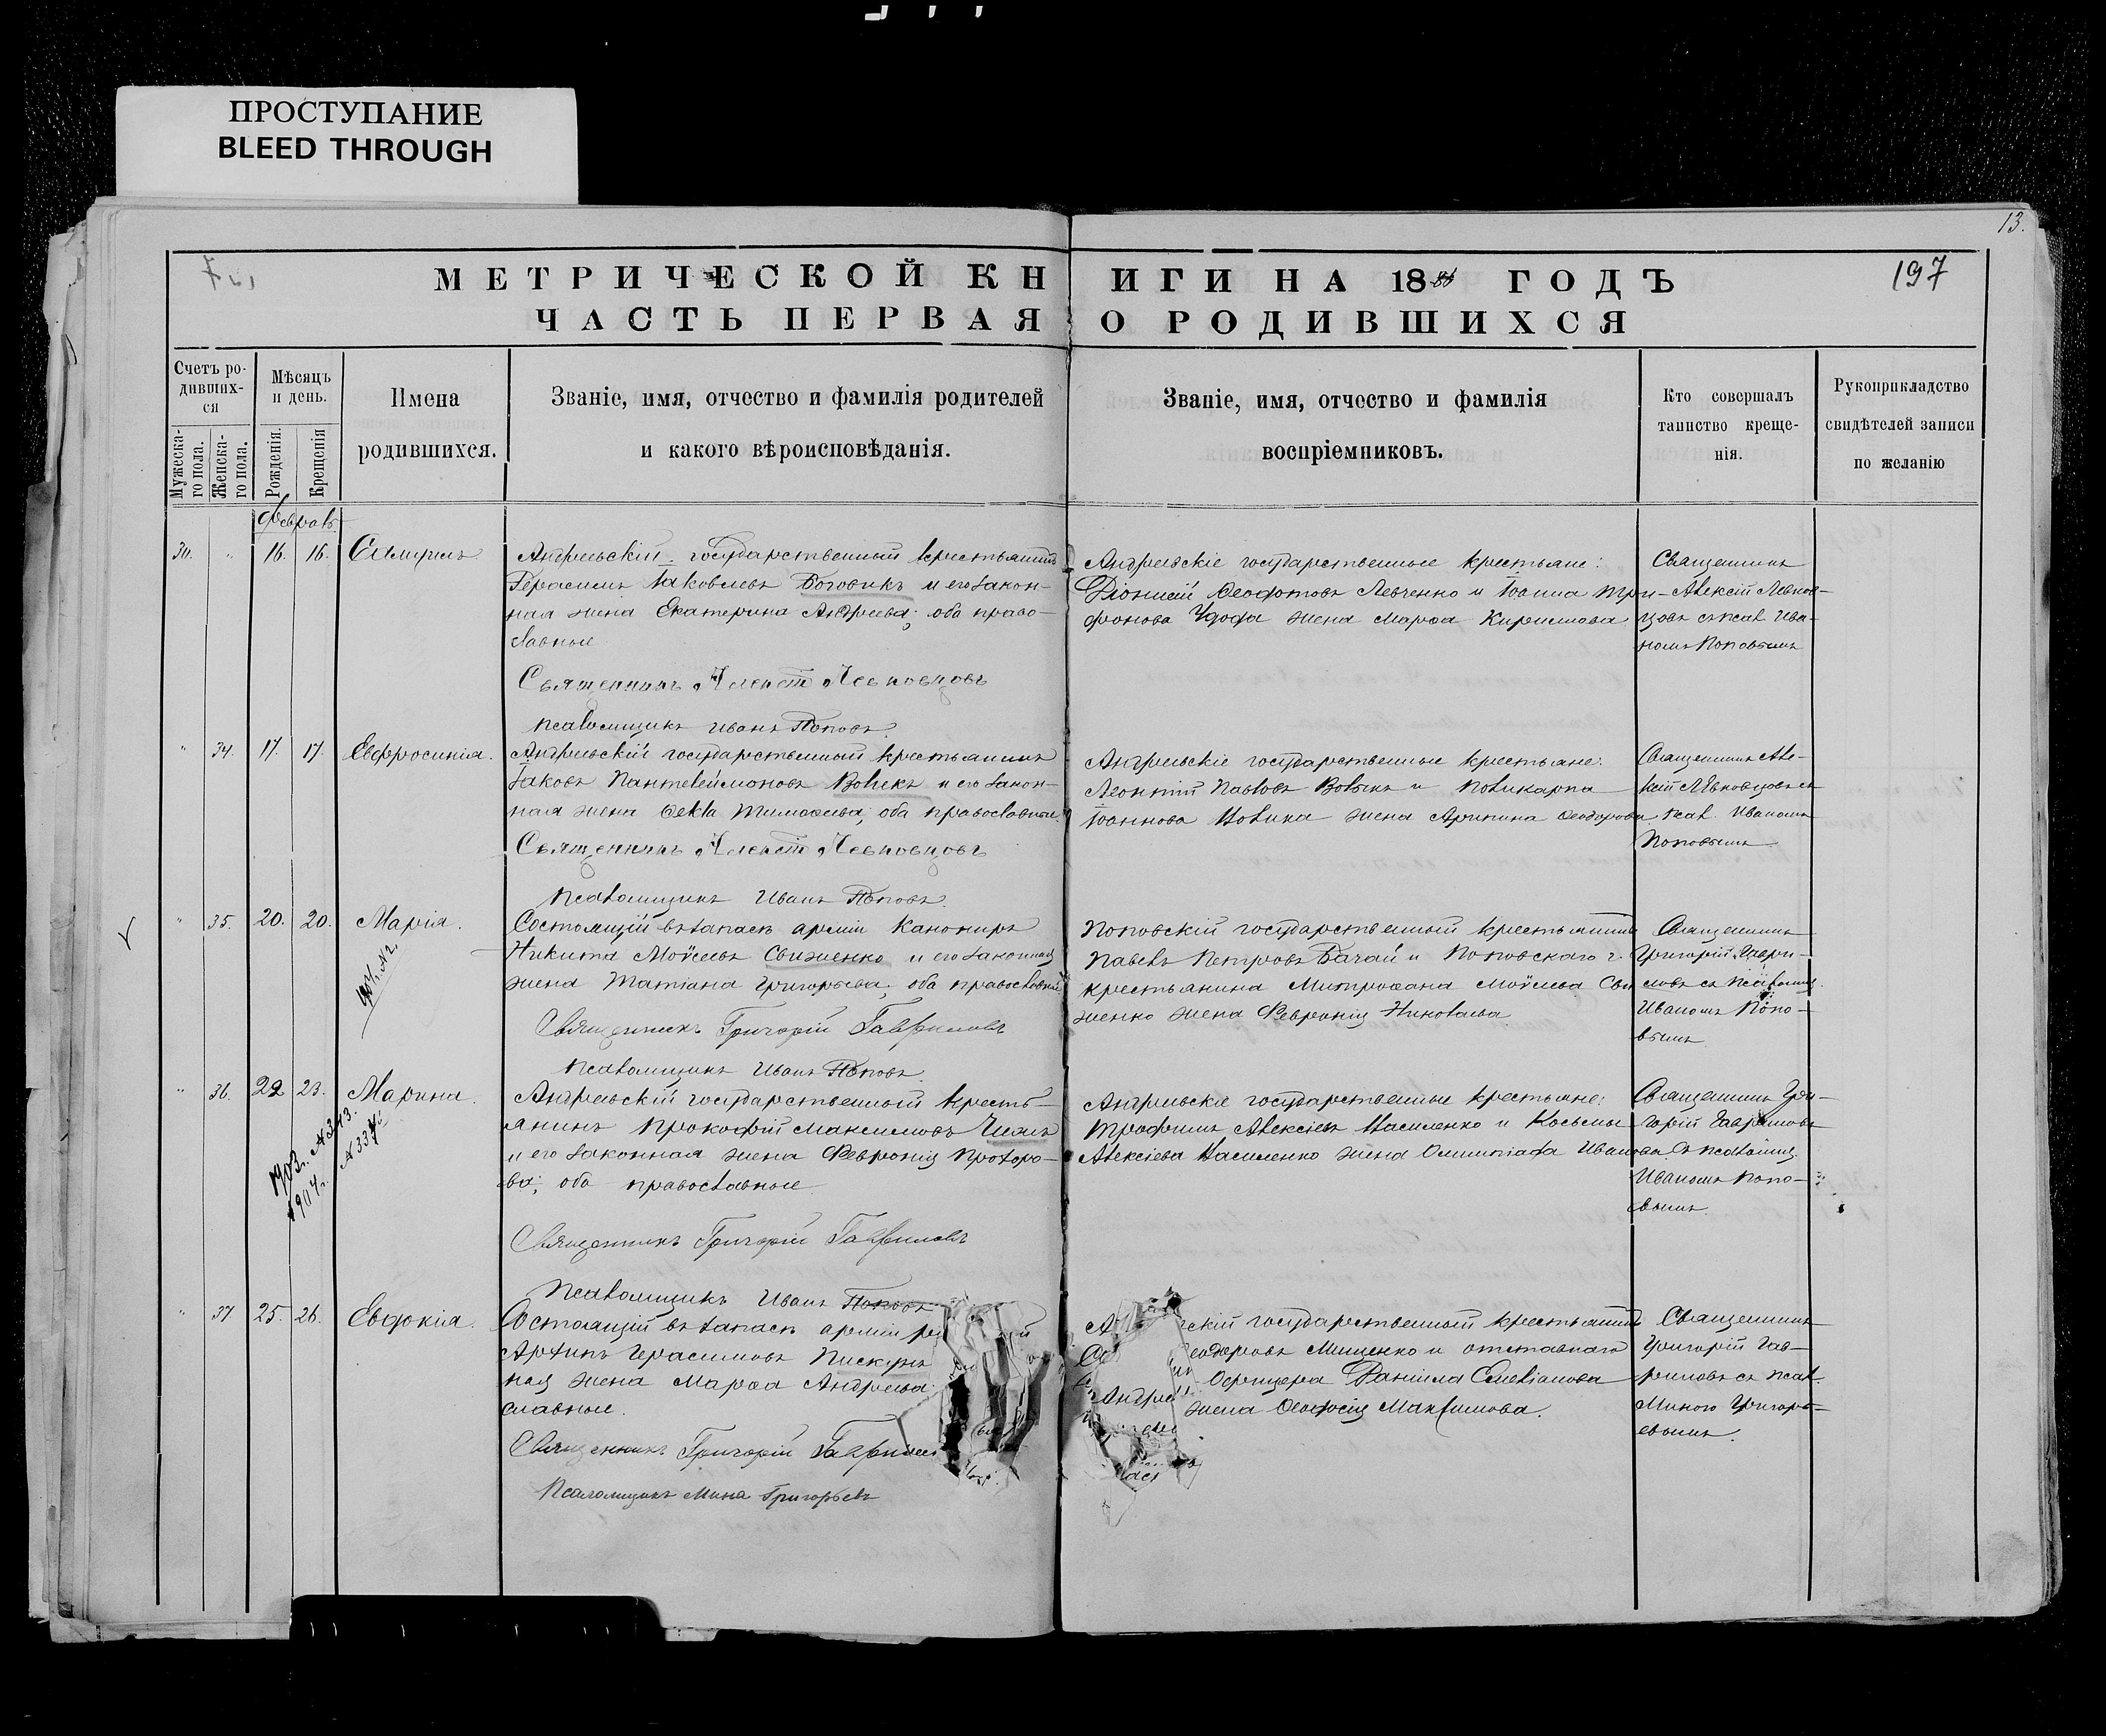 ПРОСТУПАНИЕ
BLEED THROUGH
13.
МЕТРИЧЕСКОЙ КНИГИ НА 1886 ГОДЪ
197
ЧАСТЬ ПЕРВАЯ О РОДИВШИХСЯ
Счетъ ро-
дивших-
ся
Мужеска-
го пола.
Женска-
го пола.
Мѣсяцъ
и день.
Рожденія.
Крещенія
Имена
родившихся.
Званіе, имя, отчество и фамилія родителей
и какого вѣроисповѣданія.
Званіе, имя, отчество и фамилія
воспріемниковъ.
Кто совершалъ
таинство креще-
нія.
Рукоприкладство
свидѣтелей записи
по желанію
Февраль
30. " 16. 16. Самуилъ
Андреевскій государственный крестьянинъ
Герасимъ Іаковлевъ Боговикъ и его закон-
ная жена Екатерина Андреева; оба право-
славные
Священникъ Алексій Левковцовъ
Псаломщикъ Иванъ Поповъ.
Андреевскіе государственные крестьяне:
Діонисій Ѳеодотовъ Левченко и Іоанна Три-
фонова Удода жена Марѳа Кириллова
Священникъ
Алексій Левков-
цовъ съ псал. Ива-
номъ Поповымъ
" 34. 17. 17. Евфросинія.
Андреевскій государственный крестьянинъ
Іаковъ Пантелеймоновъ Вовкъ и его закон-
ная жена Ѳекла Тимоѳеева; оба православные.
Священникъ Алексій Левковцовъ
Псаломщикъ Иванъ Поповъ.
Андреевскіе государственные крестьяне:
Леонтій Павловъ Вовкъ и Поликарпа
Іоаннова Новика жена Агрипина Ѳеодорова
Священникъ Але-
ксій Левковцовъ съ
псал. Иваномъ
Поповымъ
" 35. 20. 20. Марія.
Состоящій въ запасѣ арміи канониръ
Никита Моѵсеевъ Свиженко и его законная
жена Татіана Григорьева; оба православные
Священникъ Григорій Гавриловъ
Псаломщикъ Иванъ Поповъ.
Поповскій государственный крестьянинъ
Павелъ Петровъ Бачай и Поповскаго г.
крестьянина Митрофана Моѵсеева Сви
женко жена Февронія Николаева
Священникъ
Григорій Гаври-
ловъ съ псаломщ.
Иваномъ Попо-
вымъ
" 36. 22 23. Марина.
1903г. № 343.
Андреевскій государственный кресть-
янинъ Прокофій Максимовъ
и его законная жена Февронія Прохоро-
ва; оба православные
Священникъ Григорій Гавриловъ
Псаломщикъ Иванъ Поповъ
Андреевскіе государственные крестьяне:
Трофимъ Алексіевъ Василенко и Косьмы
Алексіева Василенко жена Олимпіада Иванова
Священникъ Гри-
горій Гавриловъ
съ псаломщ.
Иваномъ Попо-
вымъ
" 37 25. 26. Евдокія.
Состоящій въ запасѣ арміи
Герасимовъ Пискунъ
ная жена Марѳа Андреева
славные.
Священникъ Григорій
Псаломщикъ Мина Григорьевъ
скій государственный крестьянинъ
Мищенко и отставнаго
Офицера Даніила Емельянова
жена Ѳеодосія Максимова.
Священникъ
Григорій Гав-
риловъ съ псал.
Миною Григорь-
евымъ.